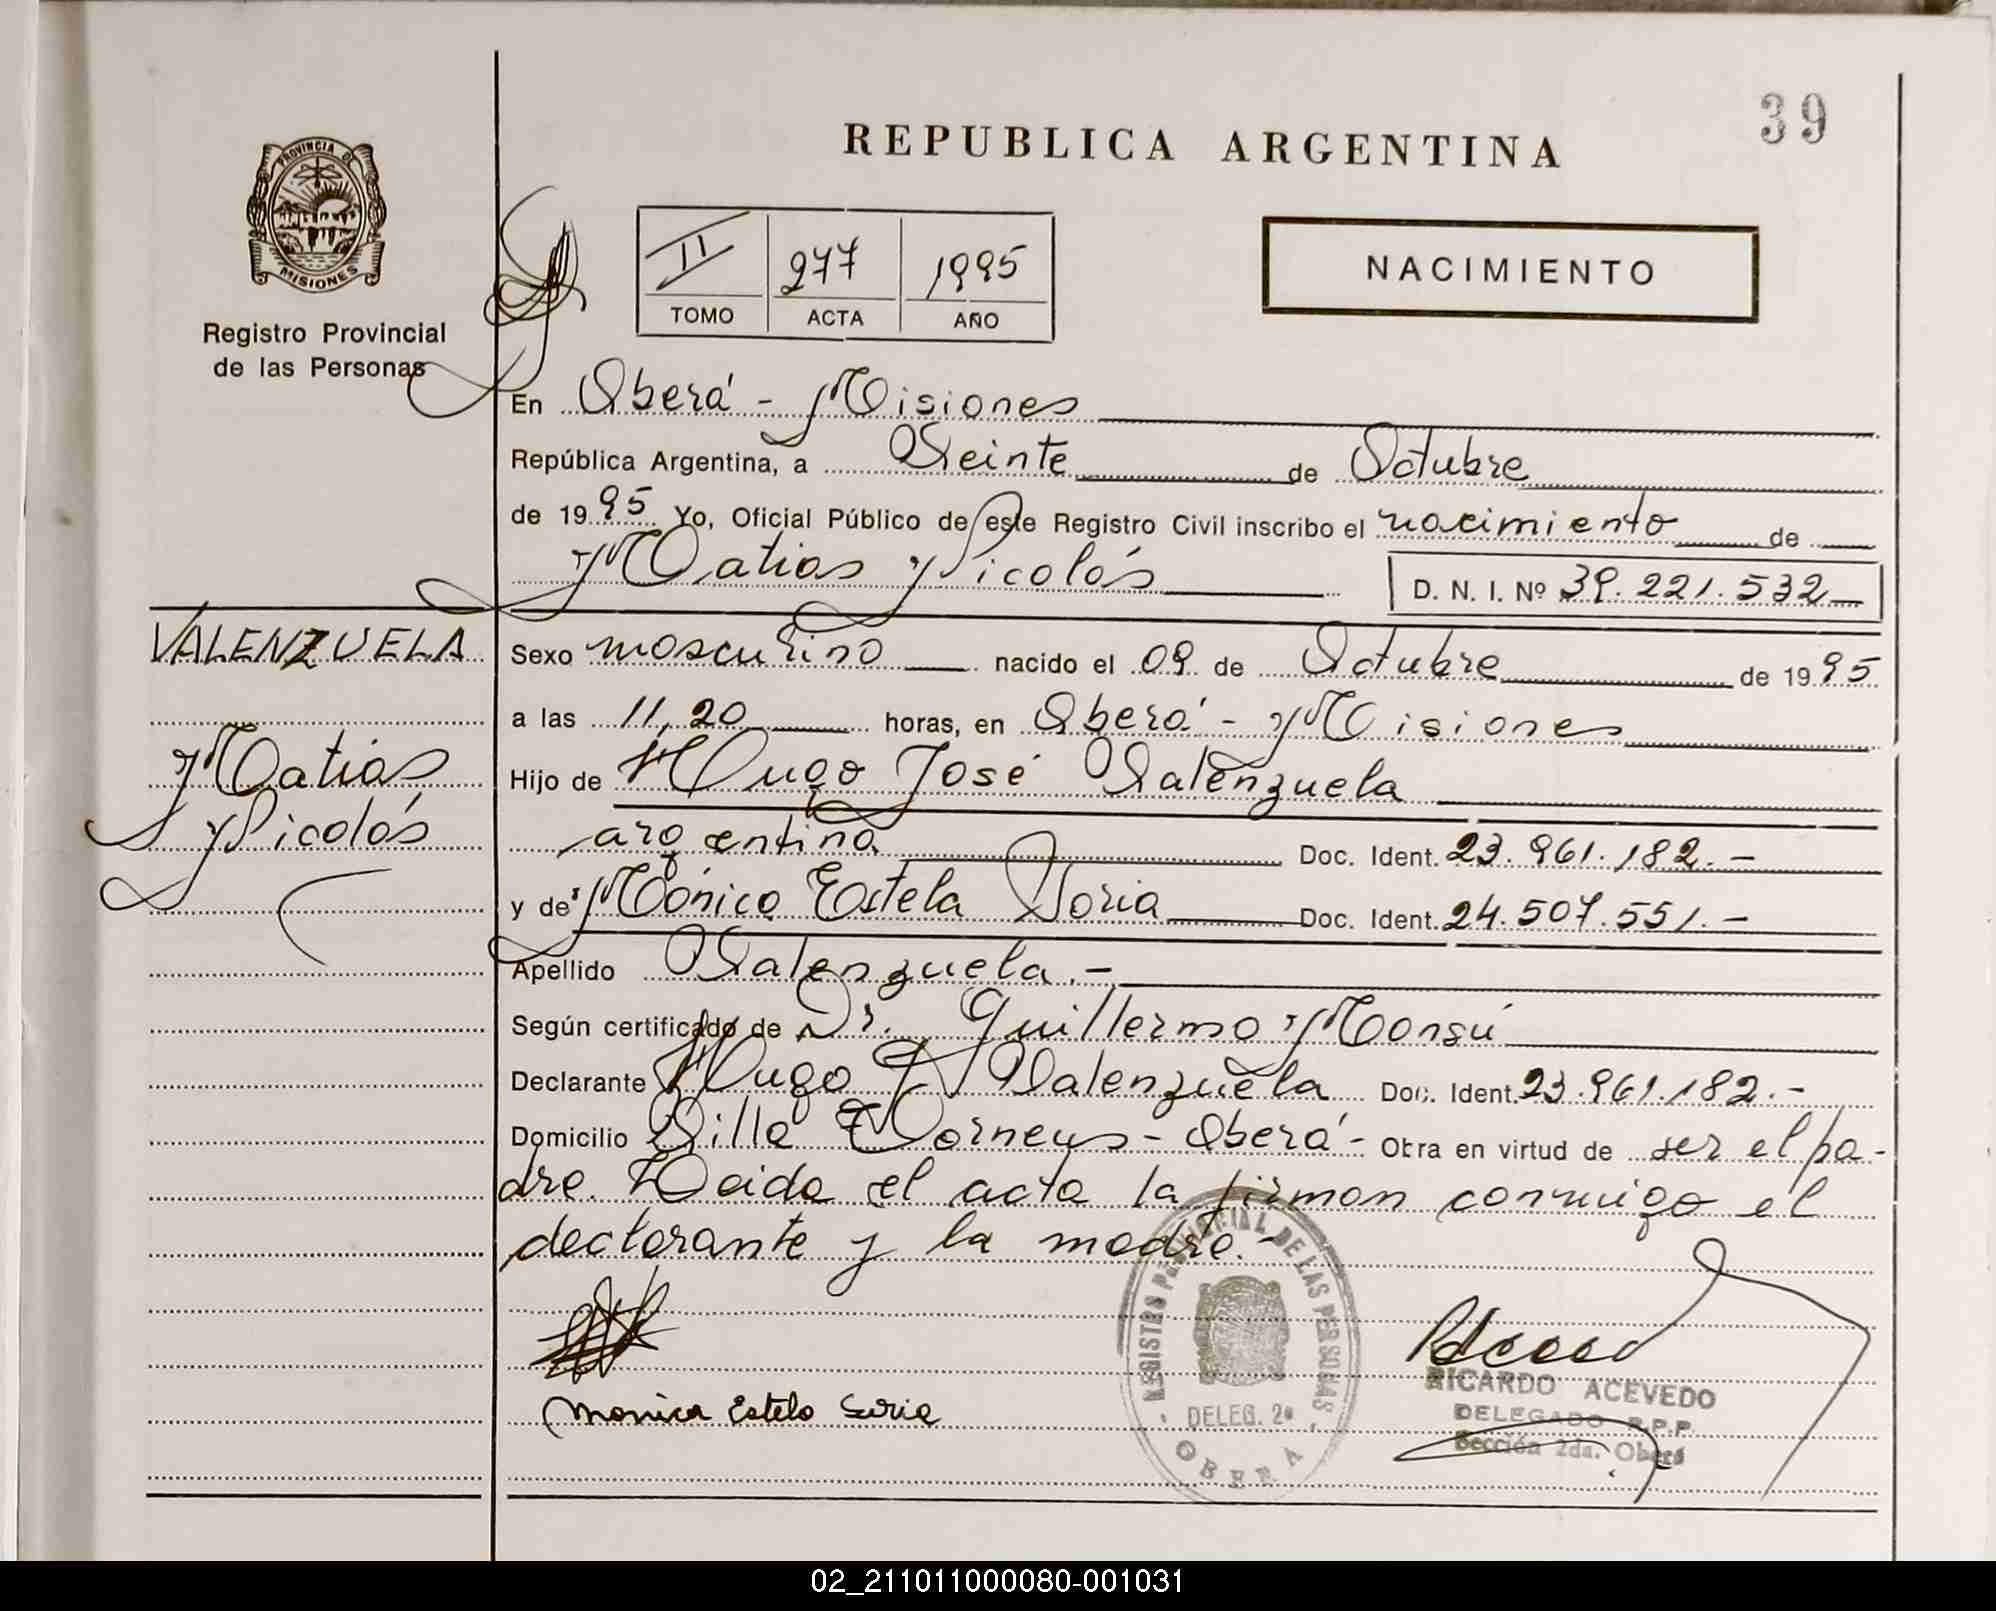 39
REPUBLICA ARGENTINA
PROVINCIA DE
MISIONES
Registro Provincial
de las Personas
II 277 1995
TOMO ACTA AÑO
NACIMIENTO
En Oberá - Misiones
República Argentina, a Veinte de Octubre
de 1995 Yo, Oficial Público de este Registro Civil inscribo el nacimiento de
Matias Nicolás D. N. I. Nº 39.221.532
VALENZUELA
Matias
Nicolás
Sexo masculino nacido el 09 de Octubre de 1995
a las 11,20 horas, en Oberá - Misiones
Hijo de Hugo José Valenzuela
argentina Doc. Ident. 23.961.182.-
y de Mónica Estela Soria Doc. Ident. 24.507.551.-
Apellido Valenzuela.-
Según certificado de Dr. Guillermo Monsú
Declarante Hugo J. Valenzuela Doc. Ident. 23.961.182.-
Domicilio Villa Torneus - Oberá - Obra en virtud de ser el pa-
dre. Leida el acta la firman conmigo el
declarante y la madre.-
Monica Estela Soria
REGISTRO PROVINCIAL DE LAS PERSONAS
DELEG. 2ª
OBERA
RICARDO ACEVEDO
DELEGADO R.P.P.
Sección 2da. Oberá
02_211011000080-001031